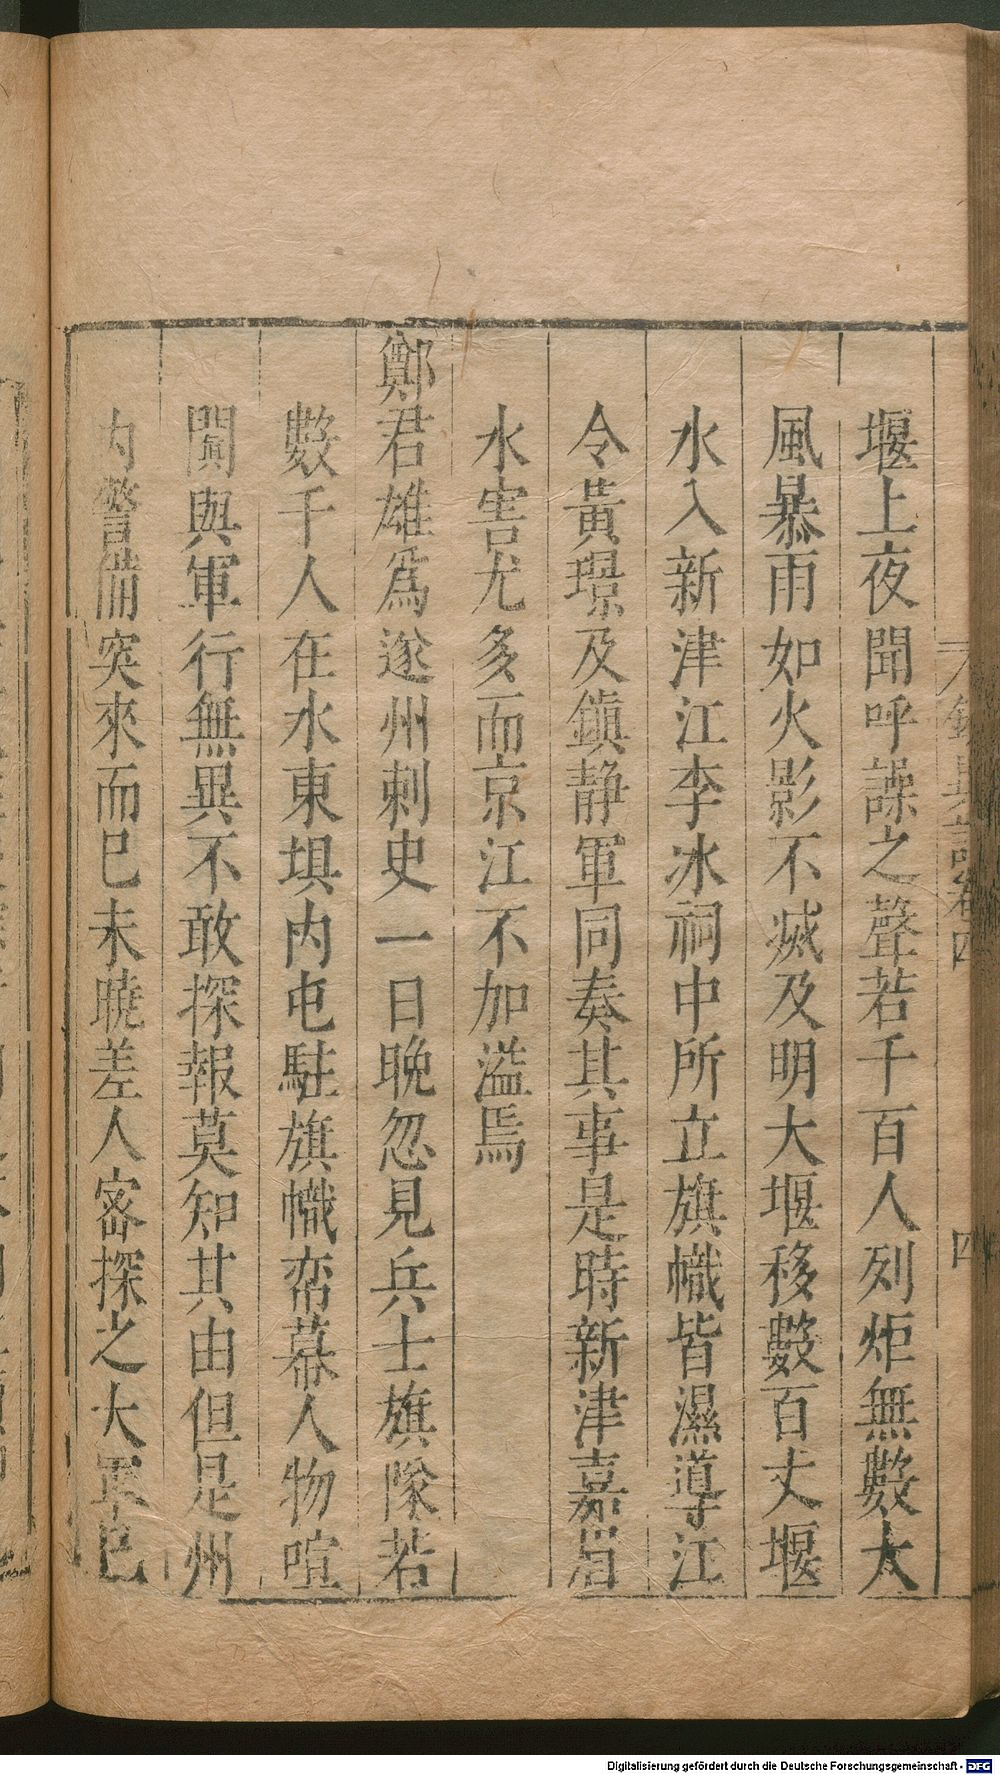 堰上夜聞呼譟之聲若千百人列炬無數大
風暴雨如火影不滅及明大堰移數百丈堰
水入新津江李冰祠中所立旗幟皆濕導江
令黃璟及鎮静軍同奏其事是時新津嘉眉
水害尤多而京江不加溢焉
鄭君雄爲遂州刺史一日晚忽見兵士旗隊若
數千人在水東壩内屯駐旗幟帟幕人物喧
闐與軍行無異不敢探報莫知其由但是州
内警備突來而已未曉差人密探之大軍已
錄異記卷四
四
Digitalisierung gefördert durch die Deutsche Forschungsgemeinschaft - DFG